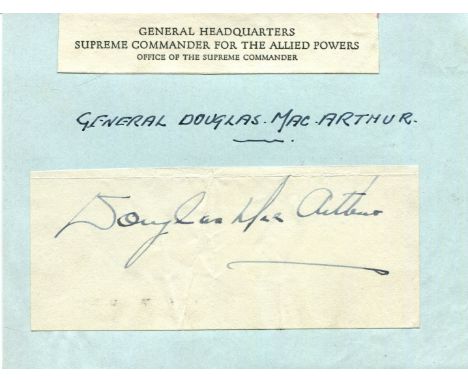 GENERAL HEADQUARTERS
SUPREME COMMANDER FOR THE ALLIED POWERS
OFFICE OF THE SUPREME COMMANDER
GENERAL DOUGLAS. MAC. ARTHUR.
Douglas MacArthur